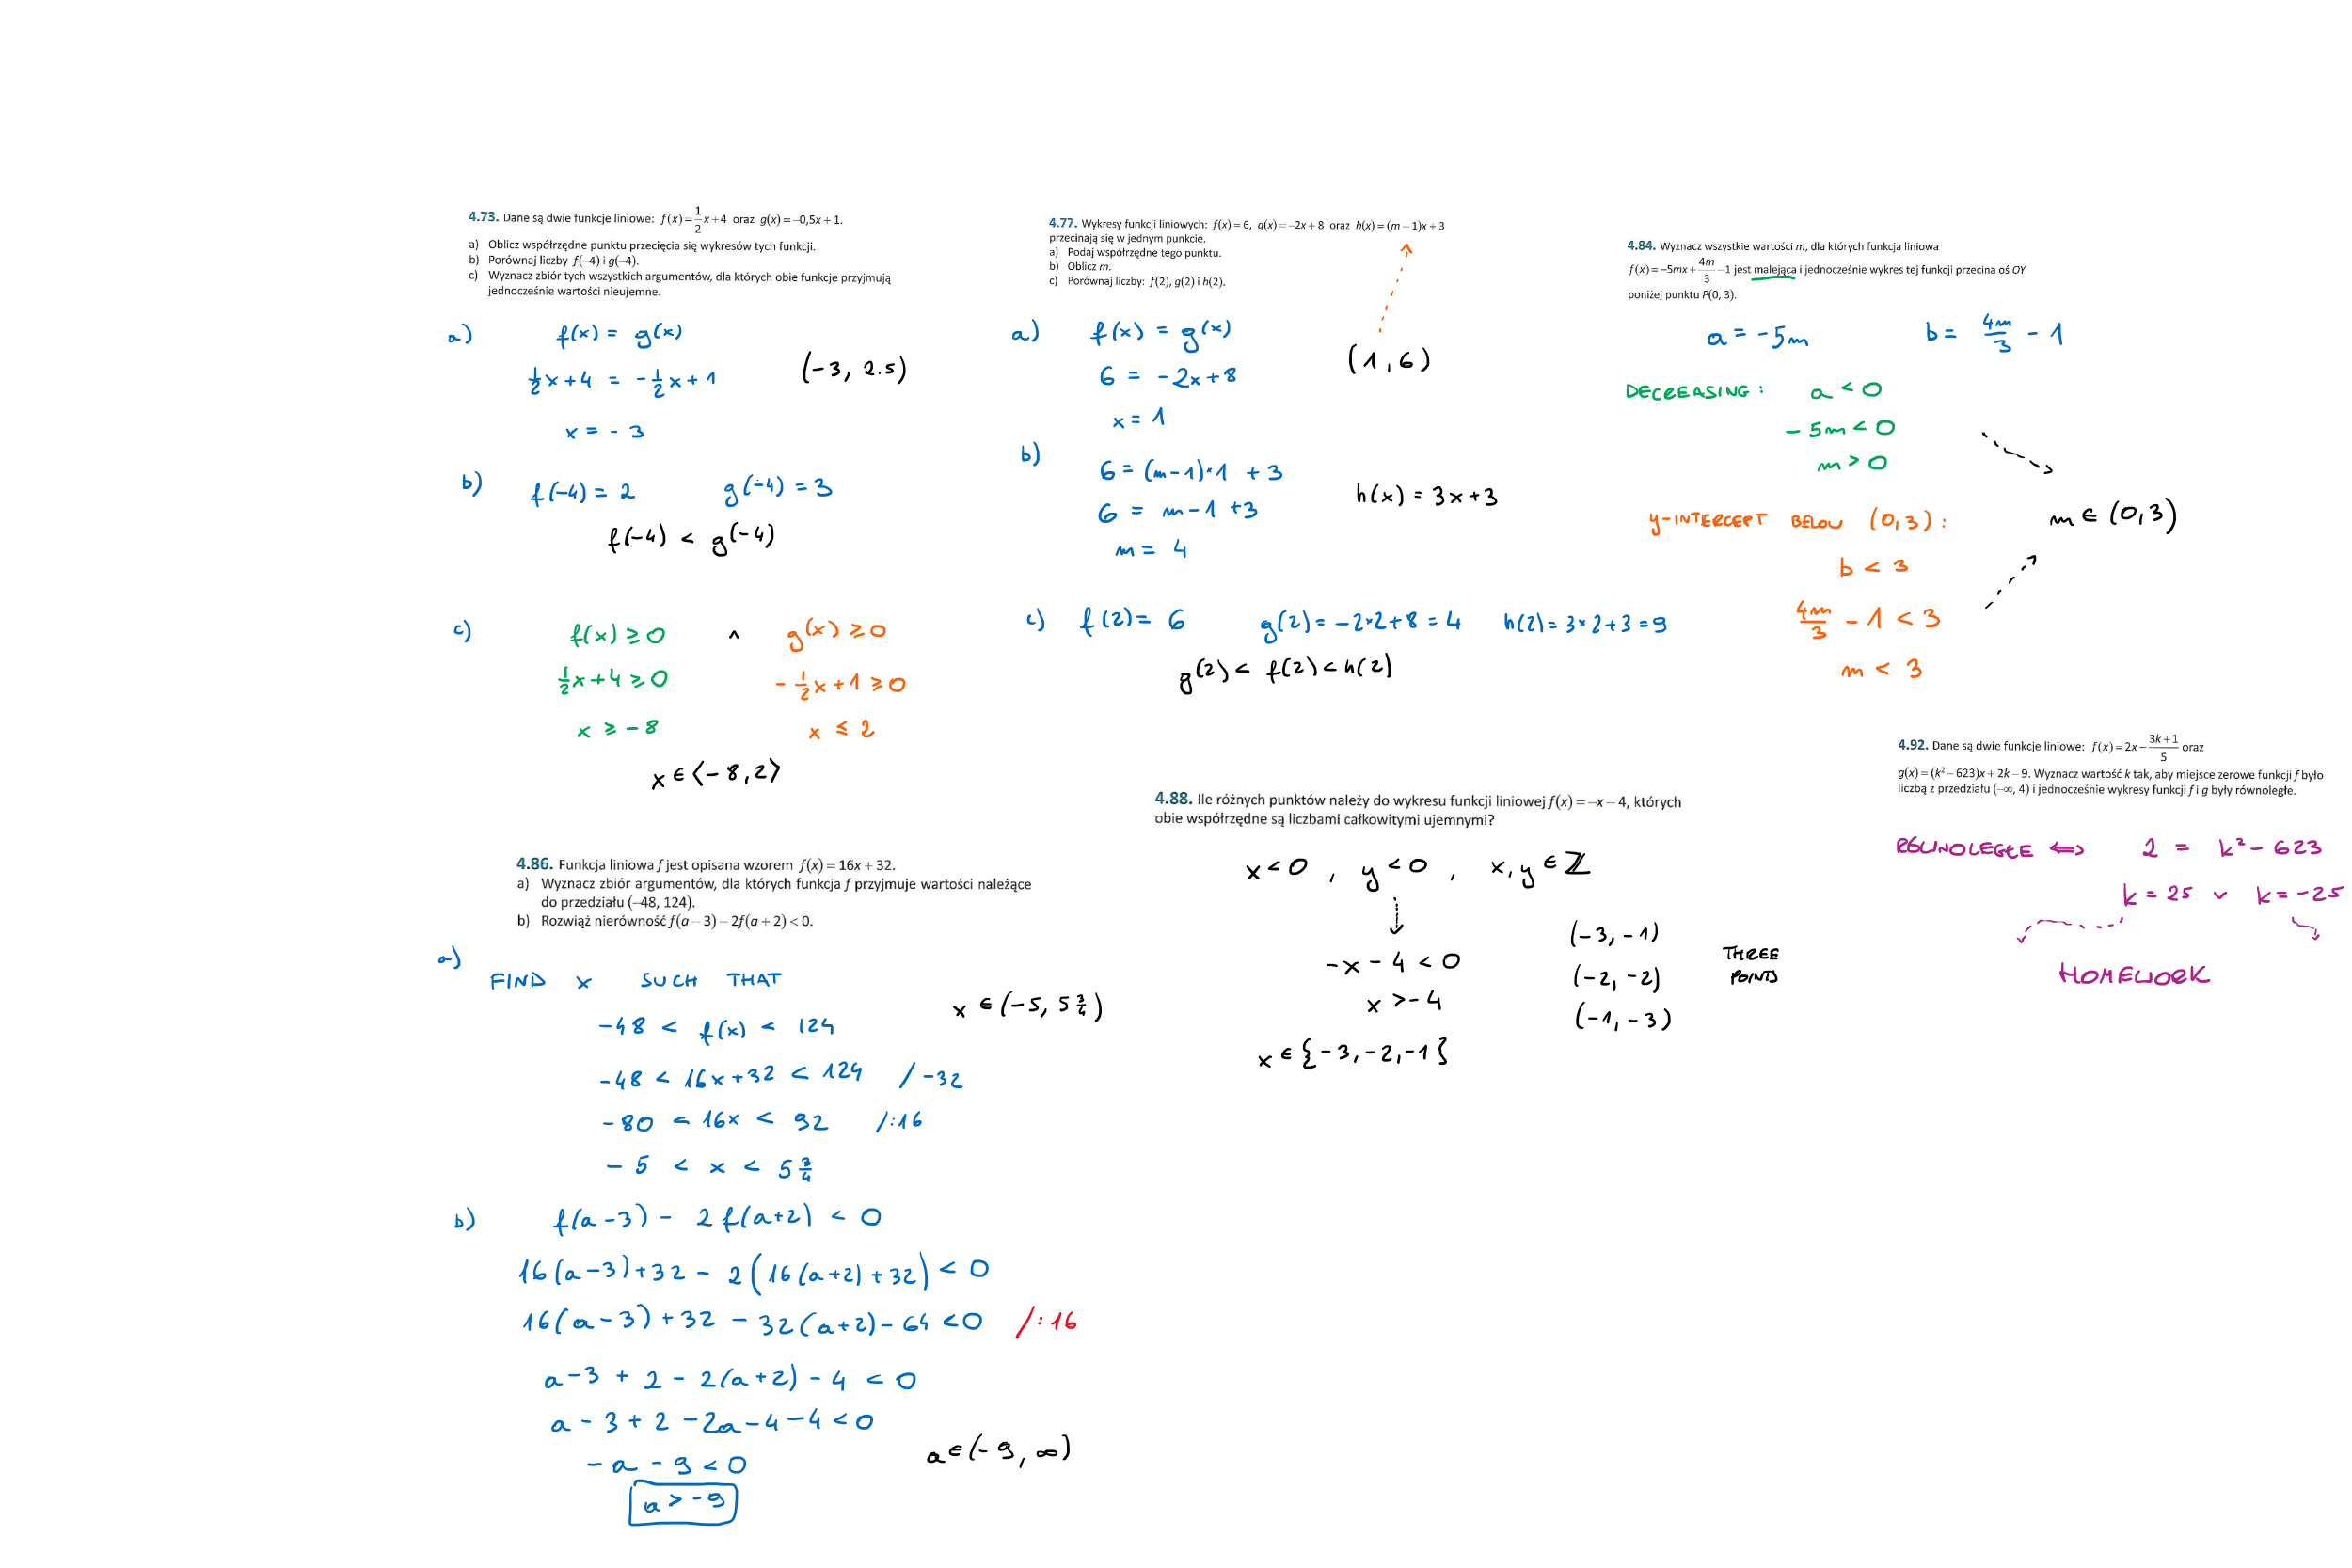 4.73. Dane są dwie funkcje liniowe: f(x)=\frac{1}{2}x+4 oraz g(x)=–0,5x+1.
a) Oblicz współrzędne punktu przecięcia się wykresów tych funkcji.
b) Porównaj liczby f(–4) i g(–4).
c) Wyznacz zbiór tych wszystkich argumentów, dla których obie funkcje przyjmują
jednocześnie wartości nieujemne.
a) f(x) = g(x)
\frac{1}{2}x+4 = -\frac{1}{2}x+1
(-3, 2.5)
x = -3
b) f(-4) = 2 g(-4) = 3
f(-4) < g(-4)
c) f(x) ≥ 0 ∧ g(x) ≥ 0
\frac{1}{2}x+4 ≥ 0 -\frac{1}{2}x+1 ≥ 0
x ≥ -8 x ≤ 2
x ∈ ⟨-8, 2⟩
4.77. Wykresy funkcji liniowych: f(x) = 6, g(x) = –2x + 8 oraz h(x) = (m – 1)x + 3
przecinają się w jednym punkcie.
a) Podaj współrzędne tego punktu.
b) Oblicz m.
c) Porównaj liczby: f(2), g(2) i h(2).
a) f(x) = g(x)
(1, 6)
6 = -2x+8
x = 1
b) 6 = (m-1)·1 + 3
6 = m-1+3
h(x) = 3x+3
m = 4
c) f(2) = 6 g(2) = -2·2+8 = 4 h(2) = 3·2+3 = 9
g(2) < f(2) < h(2)
4.84. Wyznacz wszystkie wartości m, dla których funkcja liniowa
f(x)=–5mx+\frac{4m}{3}–1 jest malejąca i jednocześnie wykres tej funkcji przecina oś OY
poniżej punktu P(0, 3).
a = -5m b = \frac{4m}{3} - 1
DECREASING: a < 0
-5m < 0
m > 0
Y-INTERCEPT BELOW (0,3):
m ∈ (0,3)
b < 3
\frac{4m}{3} - 1 < 3
m < 3
4.86. Funkcja liniowa f jest opisana wzorem f(x) = 16x + 32.
a) Wyznacz zbiór argumentów, dla których funkcja f przyjmuje wartości należące
do przedziału (–48, 124).
b) Rozwiąż nierówność f(a – 3) – 2f(a + 2) < 0.
a)
FIND x SUCH THAT
-48 < f(x) < 124
x ∈ (-5, 5\frac{3}{4})
-48 < 16x+32 < 124 /-32
-80 < 16x < 92 /:16
-5 < x < 5\frac{3}{4}
b) f(a-3) - 2f(a+2) < 0
16(a-3)+32 - 2(16(a+2)+32) < 0
16(a-3)+32 - 32(a+2)-64 < 0 /:16
a-3 + 2 - 2(a+2) - 4 < 0
a-3+2-2a-4-4 < 0
-a-9 < 0
a ∈ (-9, ∞)
a > -9
4.88. Ile różnych punktów należy do wykresu funkcji liniowej f(x) = –x – 4, których
obie współrzędne są liczbami całkowitymi ujemnymi?
x < 0 , y < 0 , x,y ∈ ℤ
-x-4 < 0
x > -4
x ∈ {-3,-2,-1}
(-3,-1)
(-2,-2)
(-1,-3)
THREE
POINTS
4.92. Dane są dwie funkcje liniowe: f(x)=2x–\frac{3k+1}{5} oraz
g(x) = (k² – 623)x + 2k – 9. Wyznacz wartość k tak, aby miejsce zerowe funkcji f było
liczbą z przedziału (–∞, 4) i jednocześnie wykresy funkcji f i g były równoległe.
RÓWNOLEGŁE ⟺ 2 = k² - 623
k = 25 ∨ k = -25
HOMEWORK